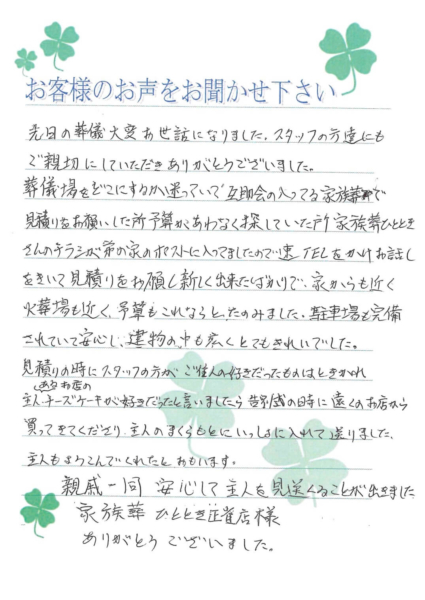 お客様のお声をお聞かせ下さい
先日の葬儀大変お世話になりました。スタッフの方達にも
ご親切にしていただきありがとうございました。
葬儀場をどこにするか迷っていて互助会の入ってる家族葬で
見積りをお願いした所予算があわなく探していた所家族葬ひととき
さんのチラシが家のポストに入ってましたので速TELをかけお話し
をきいて見積りをお願し新しく出来たばかりで、家からも近く
火葬場も近く、予算もこれならと、たのみました。駐車場も完備
されていて安心し、建物の中も広くとてもきれいでした。
見積りの時にスタッフの方が、ご主人の好きだったものはときかれ
あるお店の
主人チーズケーキが好きだったと言いましたら告別式の日時に遠くのお店から
買ってきてくださり、主人のまくらもとにいっしょに入れて送りました、
主人もよろこんでくれたとおもいます。
親戚一同 安心して主人を見送くることが出きました
家族葬 ひととき正雀店様
ありがとう ございました。